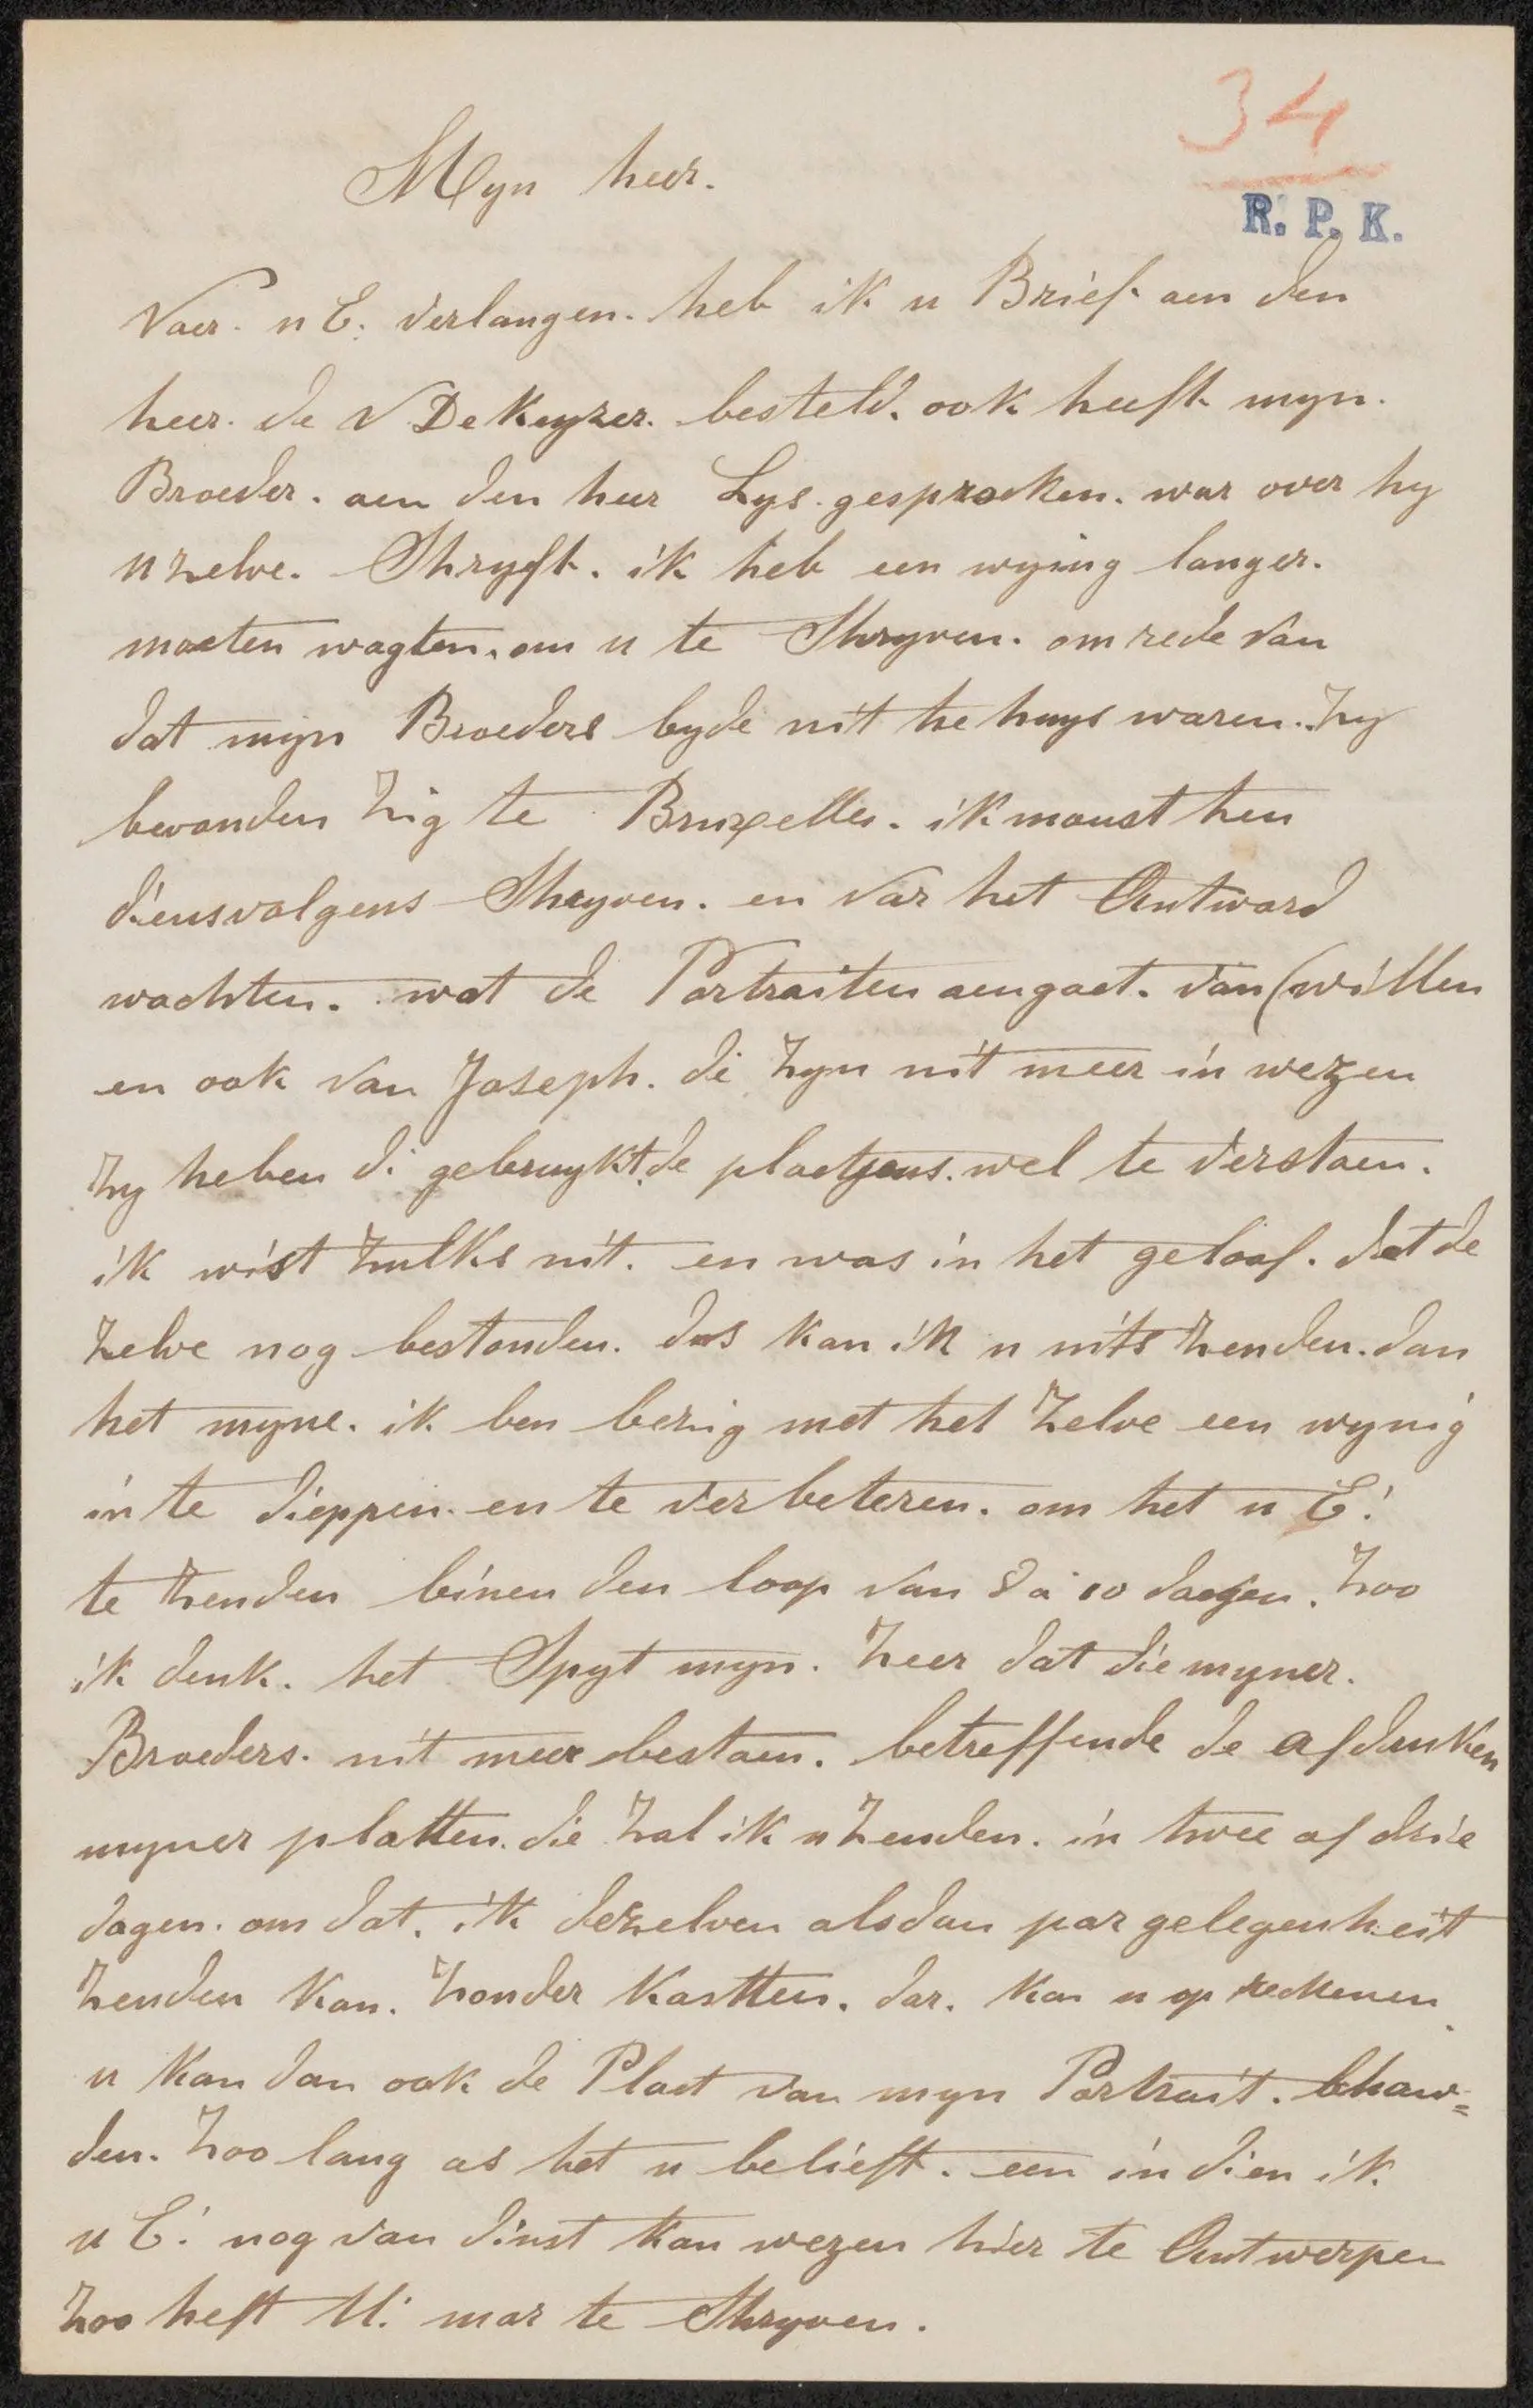 34
Myn heer.
R. P. K.
Voer. u E. verlangen. heb ik u Brief aen den
heer. de N De Keyzer. besteld. ook heeft myn.
Broeder. aen den heer Lys. gesproken. war over hy
u zelve. Shryft. ik heb een wying langer.
moeten wagten. om u te Shryven. om rede van
dat myn Broeders byde nit te huys waren. Zy
bevonden Zig te Bruxelles. ik moust hen
diensvolgens Shryven. en var het Antword
wachten. wat de Portraiten aengaet. van (willen
en ook van Joseph. di Zyn nit meer in wezen
Zy heben di gebruykt. de plaetjens. wel te verstaen.
ik wist Zulks nit. en was in het geloof. dat de
Zelve nog bestonden. dus kan ik u nits Zenden. dan
het myne. ik ben bezig met het Zelve een wynig
in te dieppen. en te verbeteren. om het u E!
te Zenden binen den loop van 8 a 10 daegen. Zoo
ik denk. het Spyt myn. Zeer dat die myner.
Broeders. nit meer bestaen. betreffende de afdrukken
myner platten. die Zal ik u Zenden. in twee of drie
dagen. om dat. ik dezelven alsdan par gelegenheit
Zenden kan. Zonder kastten. dar. kan u op reckenen.
u kan dan ook de Plaet van myn Portrait. behaw=
den. Zoo lang as het u belieft. een in dien ik
u E! nog van dinst kan wezen hier te Antwerpen
Zoo heft U! mar te Shryven.